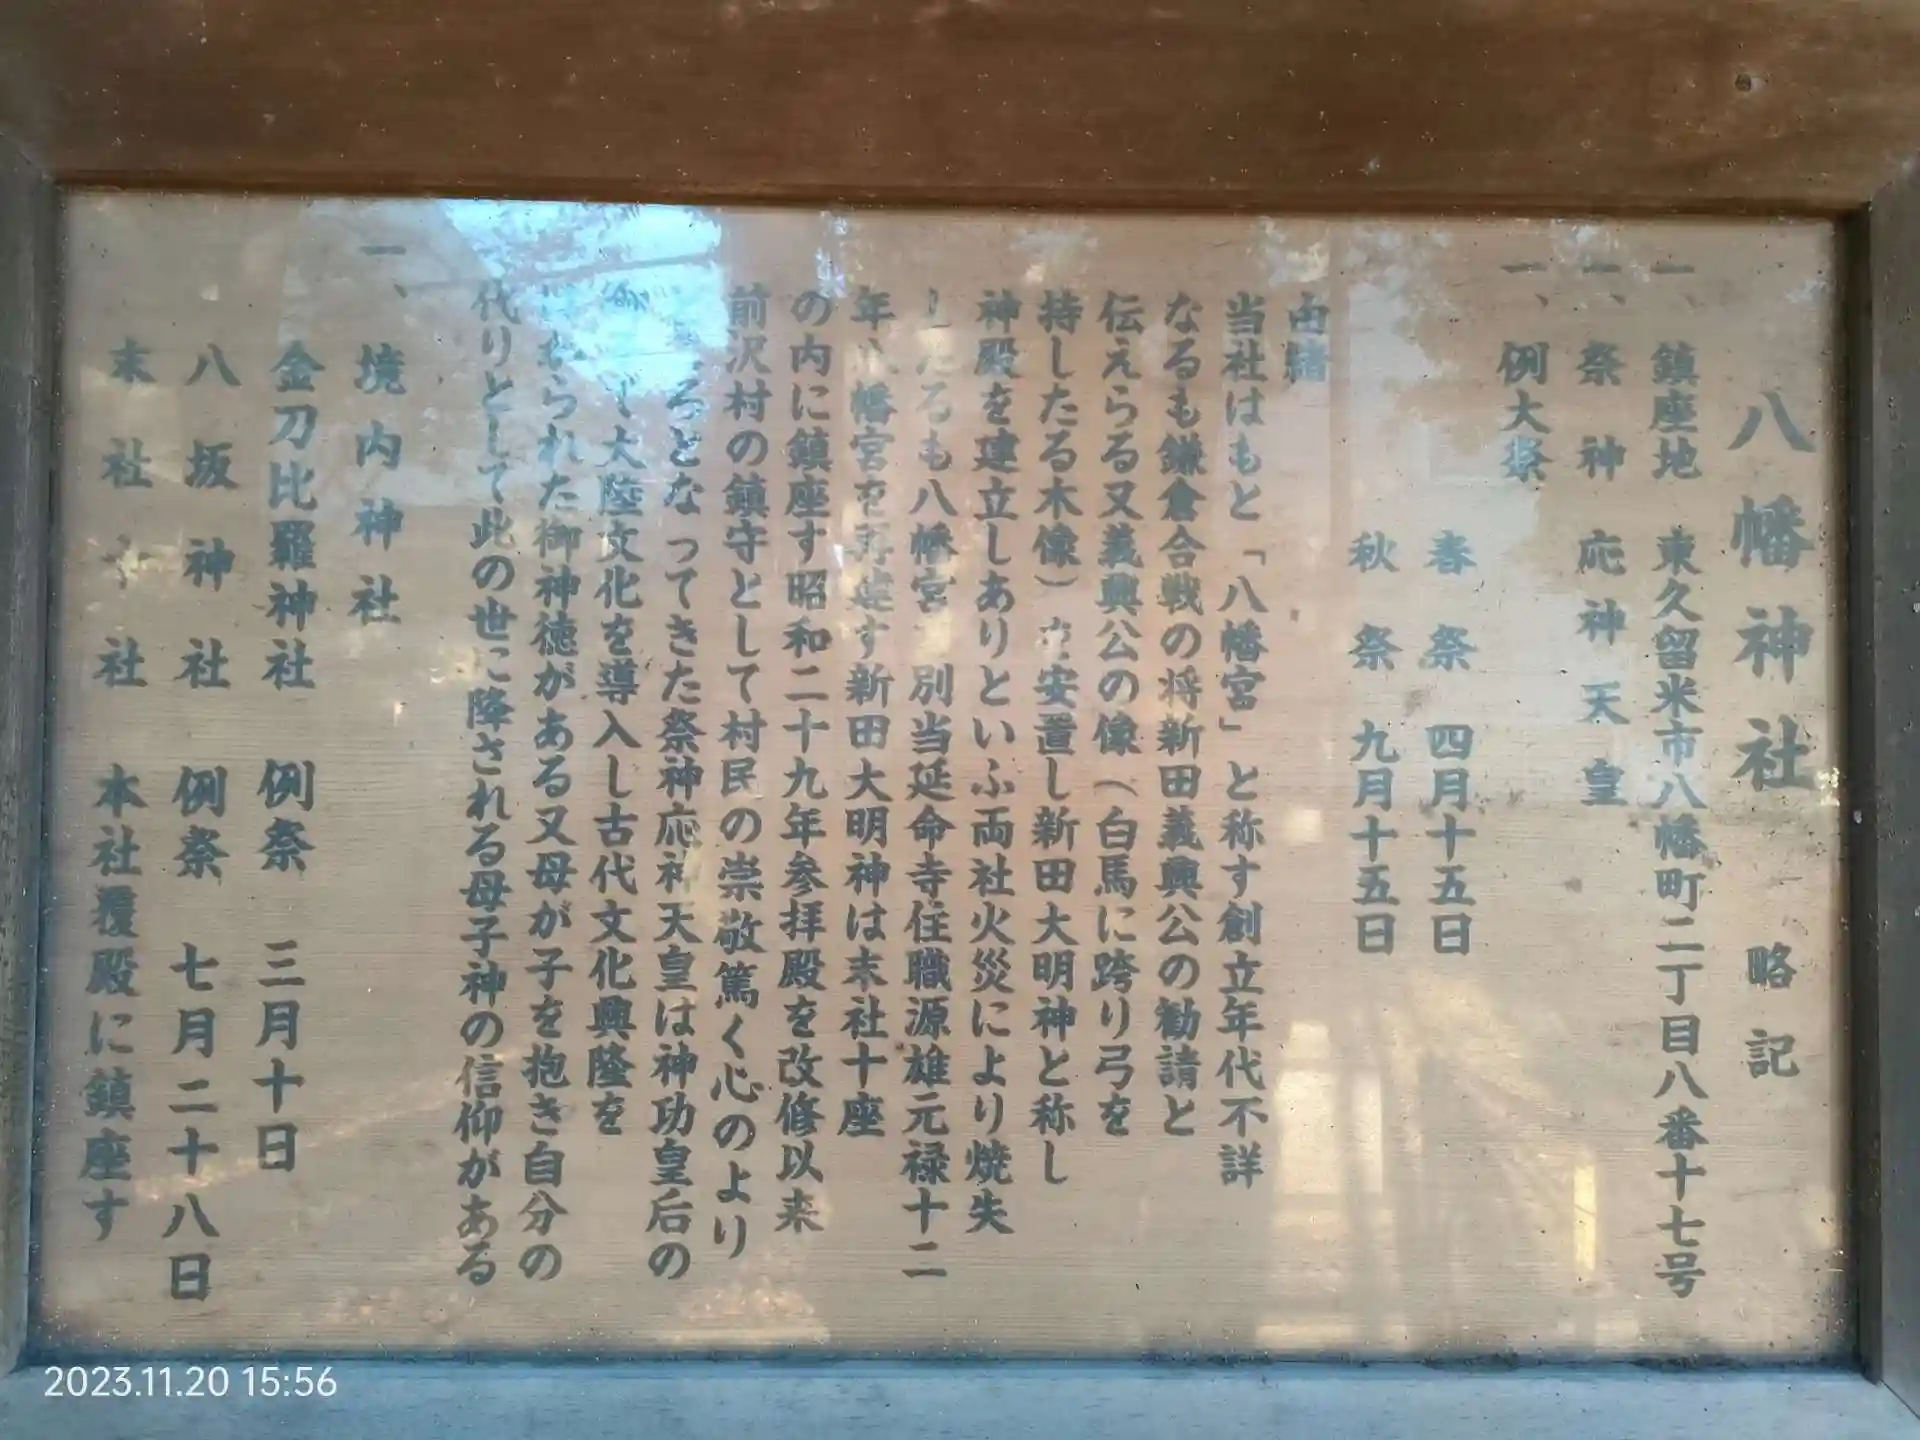 八幡神社 略記
一、鎮座地 東久留米市八幡町二丁目八番十七号
一、祭神 応神天皇
一、例大祭
春祭 四月十五日
秋祭 九月十五日
由緒
当社はもと「八幡宮」と称す創立年代不詳
なるも鎌倉合戦の将新田義興公の勧請と
伝えらる又義興公の像（白馬に跨り弓を
持したる木像）を安置し新田大明神と称し
神殿を建立しありといふ両社火災により焼失
したるも八幡宮 別当延命寺住職源雄元禄十二
年 八幡宮を再建す新田大明神は末社十座
の内に鎮座す昭和二十九年参拝殿を改修以来
前沢村の鎮守として村民の崇敬篤く心のより
どころとなってきた祭神応神天皇は神功皇后の
大陸文化を導入し古代文化興隆を
はかられた御神徳がある又母が子を抱き自分の
代りとして此の世に降される母子神の信仰がある
一、境内神社
金刀比羅神社 例祭 三月十日
八坂神社 例祭 七月二十八日
末社十社 本社覆殿に鎮座す
2023.11.20 15:56